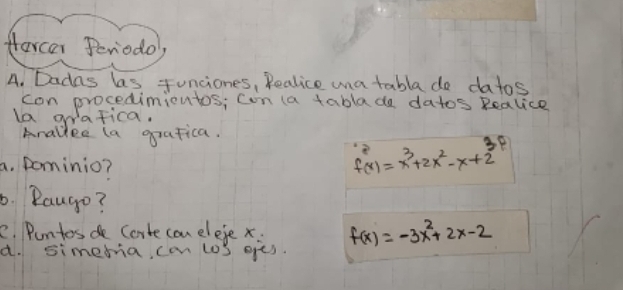 tercer Periodo,
A. Dadas las Funciones, Realice una tabla de datos
con procedimientos; Con la tabla de datos Realice
la grafica.
Analice la grafica.
a. Dominio?
b. Rango?
c. Puntos de Corte con el eje x.
d. simetria, con los ejes.
3P
f(x) = x³+2x²-x+2
f(x) = -3x²+2x-2